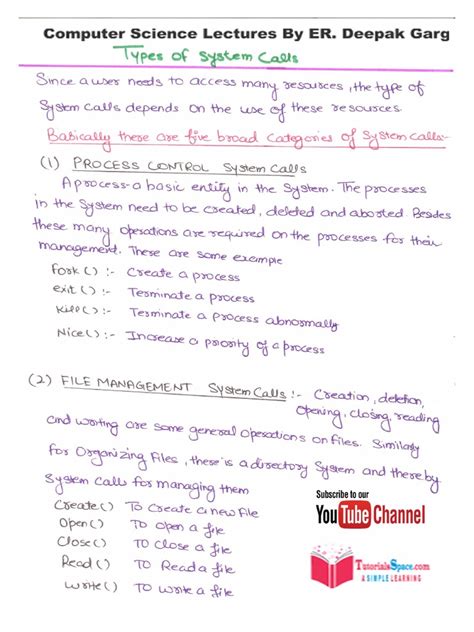 Computer Science Lectures By ER. Deepak Garg
Types of System Calls
Since a user needs to access many resources, the type of
System calls depends on the use of these resources
Basically there are five broad categories of System calls:-
(1) PROCESS CONTROL System Calls
A process-a basic entity in the System. The processes
in the System need to be created, deleted and aborted. Besides
these many operations are required on the processes for their
management. There are some example
fork() :- Create a process
exit() :- Terminate a process
Kill() :- Terminate a process abnormally
Nice() :- Increase a priority of a process
(2) FILE MANAGEMENT System Calls :- Creation, deletion,
opening, closing, reading
and writing are some general operations on files. Similarly
for Organizing Files, there is a directory System and thereby
System calls for managing them
Create() To Create a new file
Open() To open a file
Close() To close a file
Read() To Read a file
Write() To write a file
Subscribe to our
YouTube Channel
TutorialsSpace.com
A SIMPLE LEARNING